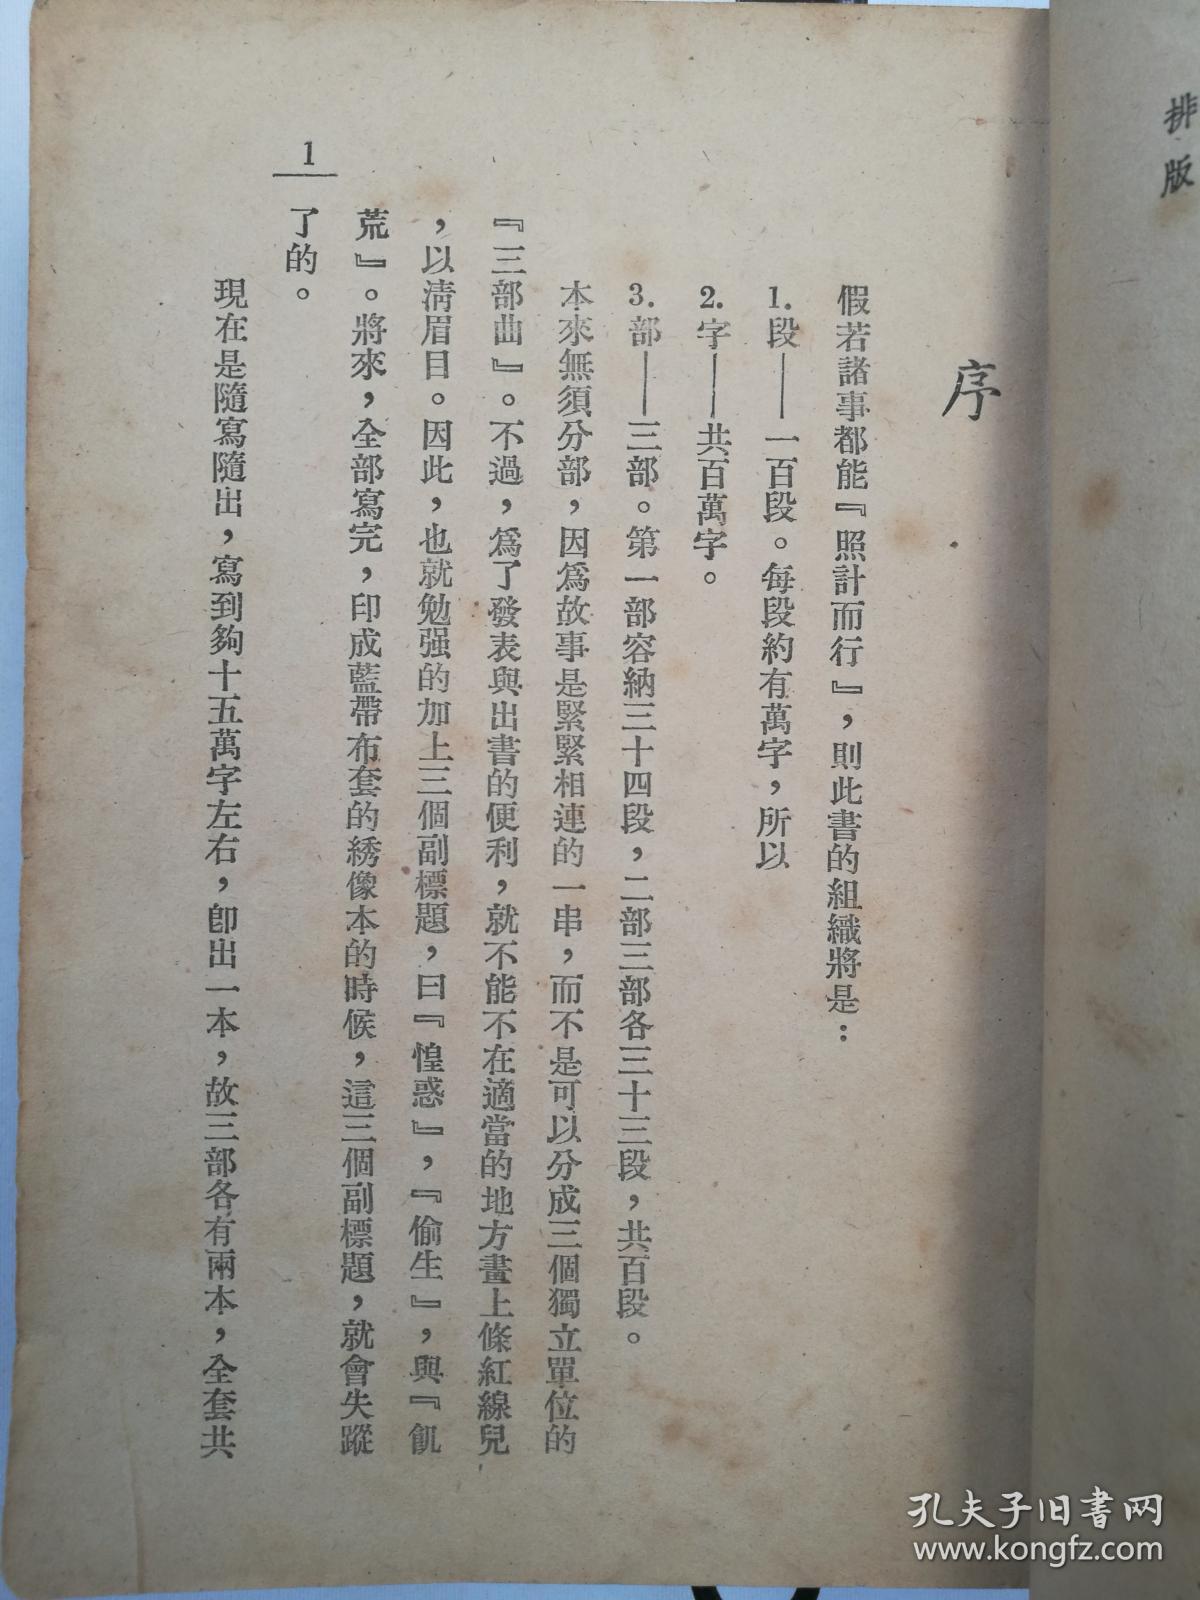 排版
序
假若諸事都能『照計而行』，則此書的組織將是：
1. 段——一百段。每段約有萬字，所以
2. 字——共百萬字。
3. 部——三部。第一部容納三十四段，二部三部各三十三段，共百段。
本來無須分部，因為故事是緊緊相連的一串，而不是可以分成三個獨立單位的
『三部曲』。不過，為了發表與出書的便利，就不能不在適當的地方畫上條紅線兒
，以清眉目。因此，也就勉强的加上三個副標題，曰『惶惑』，『偷生』，與『飢
荒』。將來，全部寫完，印成藍帶布套的綉像本的時候，這三個副標題，就會失蹤
了的。
現在是隨寫隨出，寫到夠十五萬字左右，即出一本，故三部各有兩本，全套共
1
孔夫子旧书网
www.kongfz.com